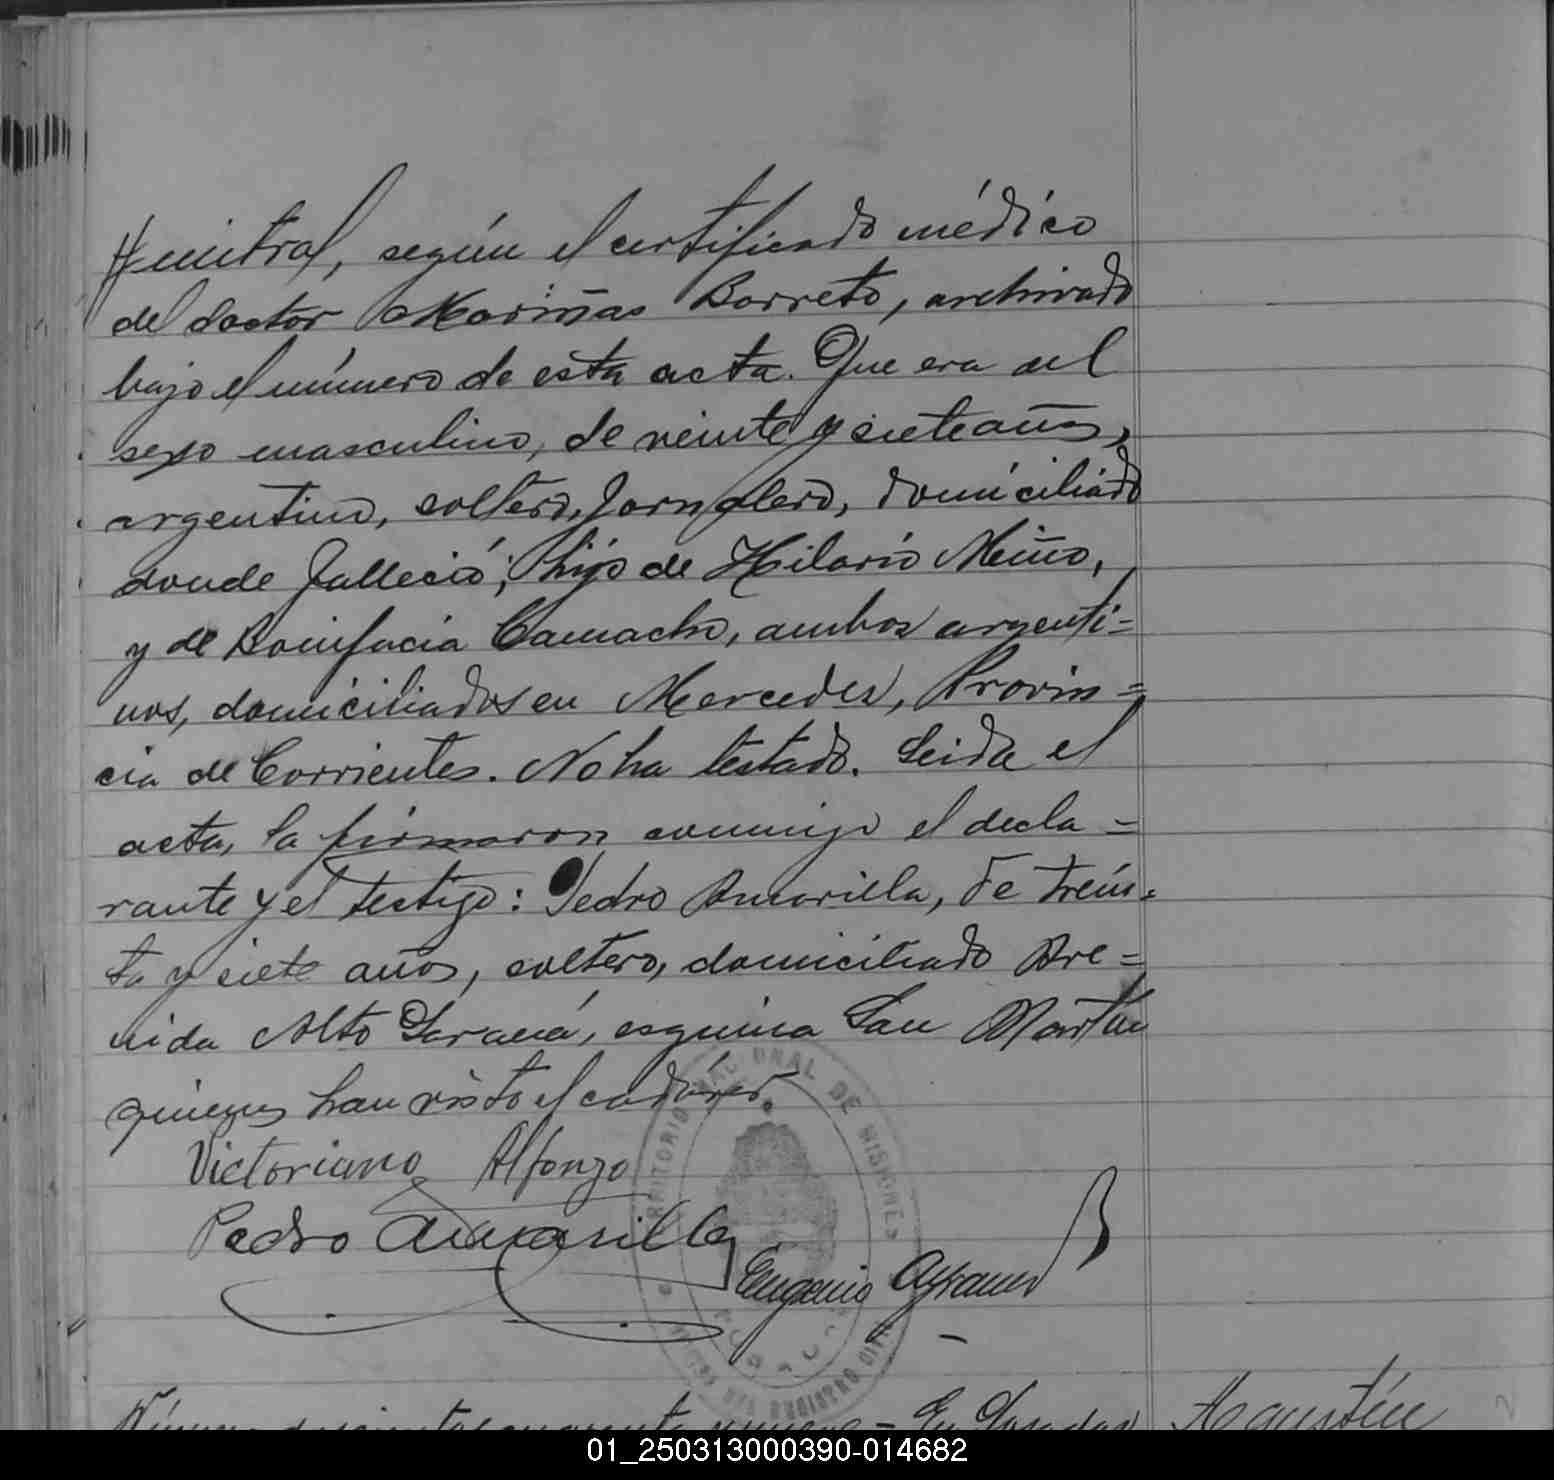 mitral, según el certificado médico
del doctor Mariñas Barreto, archivado
bajo el número de esta acta. Que era del
sexo masculino, de veinte y siete años,
argentino, soltero, Jornalero, domiciliado
donde falleció; hijo de Hilario Miño,
y de Bonifacia Camacho, ambos argenti=
nos, domiciliados en Mercedes, Provin=
cia de Corrientes. No ha testado. Leida el
acta, la firmaron conmigo el decla=
rante y el testigo: Pedro Amarilla, de trein=
ta y siete años, soltero, domiciliado Ave=
nida Alto Paraná, esquina San Martín
quienes han visto el cadáver.
Victoriano Alfonzo
Pedro Amarilla
Eugenio
TERRITORIO NACIONAL DE MISIONES
REGISTRO CIVIL
Número doscientos cuarenta y nueve = En Posadas
Agustín
01_250313000390-014682